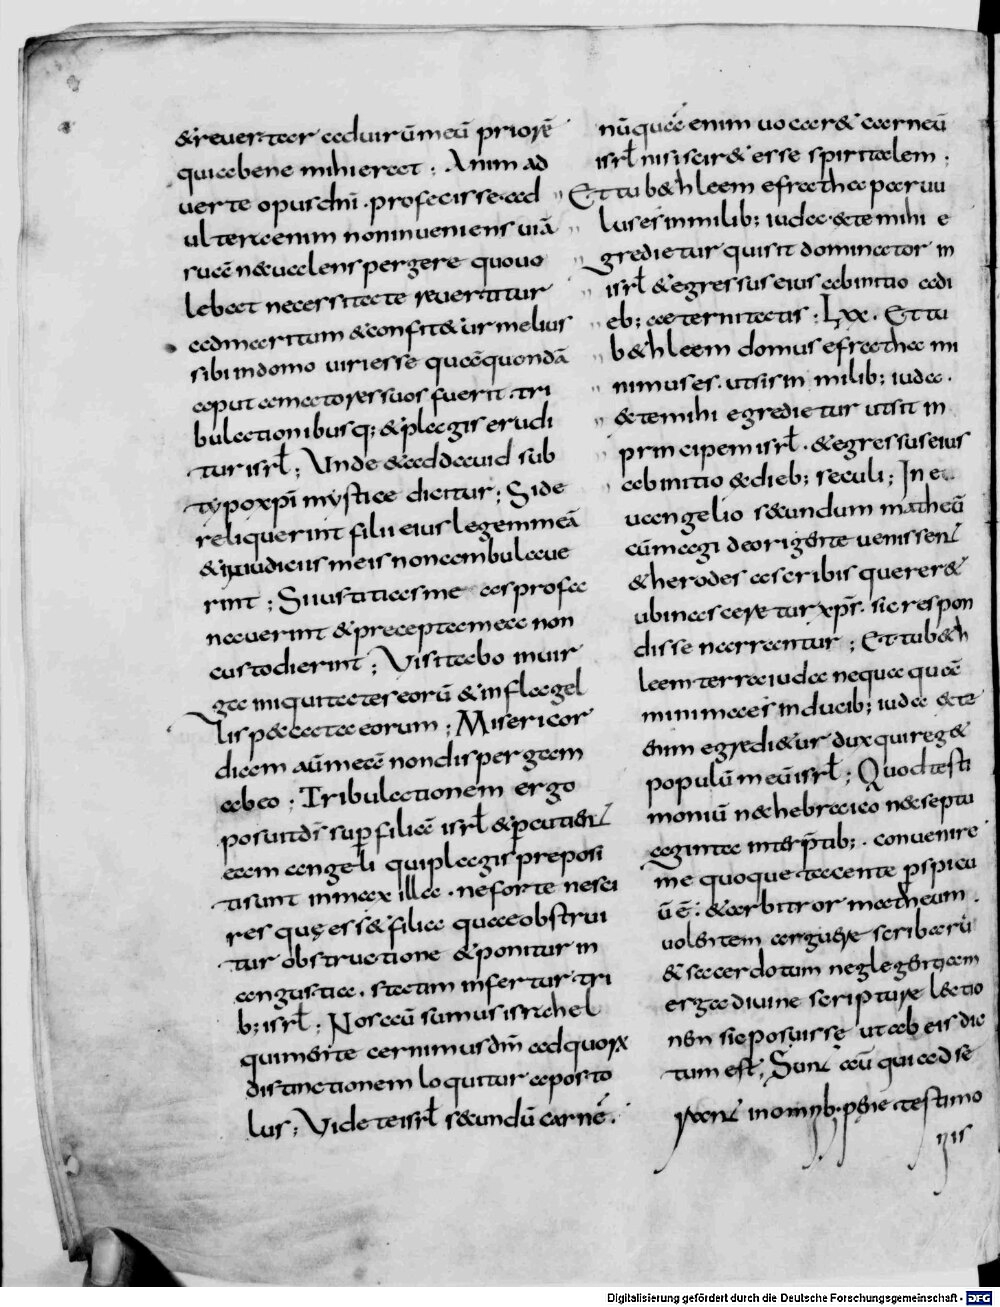 &reuertar ad uirū meū priorē
quia bene mihi erat; Anim ad
uerte opus dn̄i · profecisse · ad
ultera enim non inueniens uiā
suā n& ualens pergere quo uo
lebat necessitate reuertitur
ad maritum & confit&ur melius
sibi in domo uiri esse quā quondā
aput amatores suos fuerit · tri
bulationibusq; & plagis erudi
tur isrl̄; Unde & ad dauid sub
typo xp̄i mystice dicitur; Si de
reliquerint filii eius legem meā
& in iudiciis meis non ambulaue
rint; Si iustitias me as profa
nauerint & precepta mea non
custodierint; Visitabo in uir
ga iniquitates eorū & in flagel
lis peccata eorum; Misericor
diam aūt meā non dispergam
ab eo; Tribulationem ergo
posuit ds̄ sup filiā isrl̄ & pcutient
eam angeli qui plagis preposi
ti sunt in maxilla · ne forte nesci
res quę ess& filia quae obstrui
tur obstructione & ponitur in
angustia · statim infertur tri
b; isrl̄; Nos aū sumus israhel
qui mente cernimus dm̄ ad quorx
distinctionem loquitur aposto
lus; Videte isrl̄ secundū carnē.
nūquā enim uocar& carneū
isrl̄ nisi scir& esse spiritalem;
Et tu b&hleem efratha paruu
lus es in milib; iuda · & te mihi e
gredietur qui sit dominator in
isrl̄ & egressus eius ab initio a di
eb; aeternitatis; Lxx. Et tu
b&hleem domus efratha mi
nimus es. ut sis in milib; iuda.
& te mihi egredietur ut sit in
principem isrl̄. & egressus eius
ab initio & dieb; seculi; In e
uangelio secundum matheū
cū magi de oriente uenissent
& herodes a scribis querer&
ubi nasceretur xp̄s. sic respon
disse narrantur; Et tu b&h
leem terra iuda nequaquā
minima es in ducib; iuda & te
enim egredi&ur dux qui reg&
populū meū isrl̄; Quod testi
moniū nec hebraico nec septu
aginta interptib; · conuenire
me quoque tacente pspicu
ū ē. & arbitror matheum.
uolentem arguere scribarū
& sacerdotum neglegentiam
erga divine scripture lectio
nem sic posuisse ut ab eis dic
tum est; Sunt aū qui adse
rant in omnib. pene testimo
niis